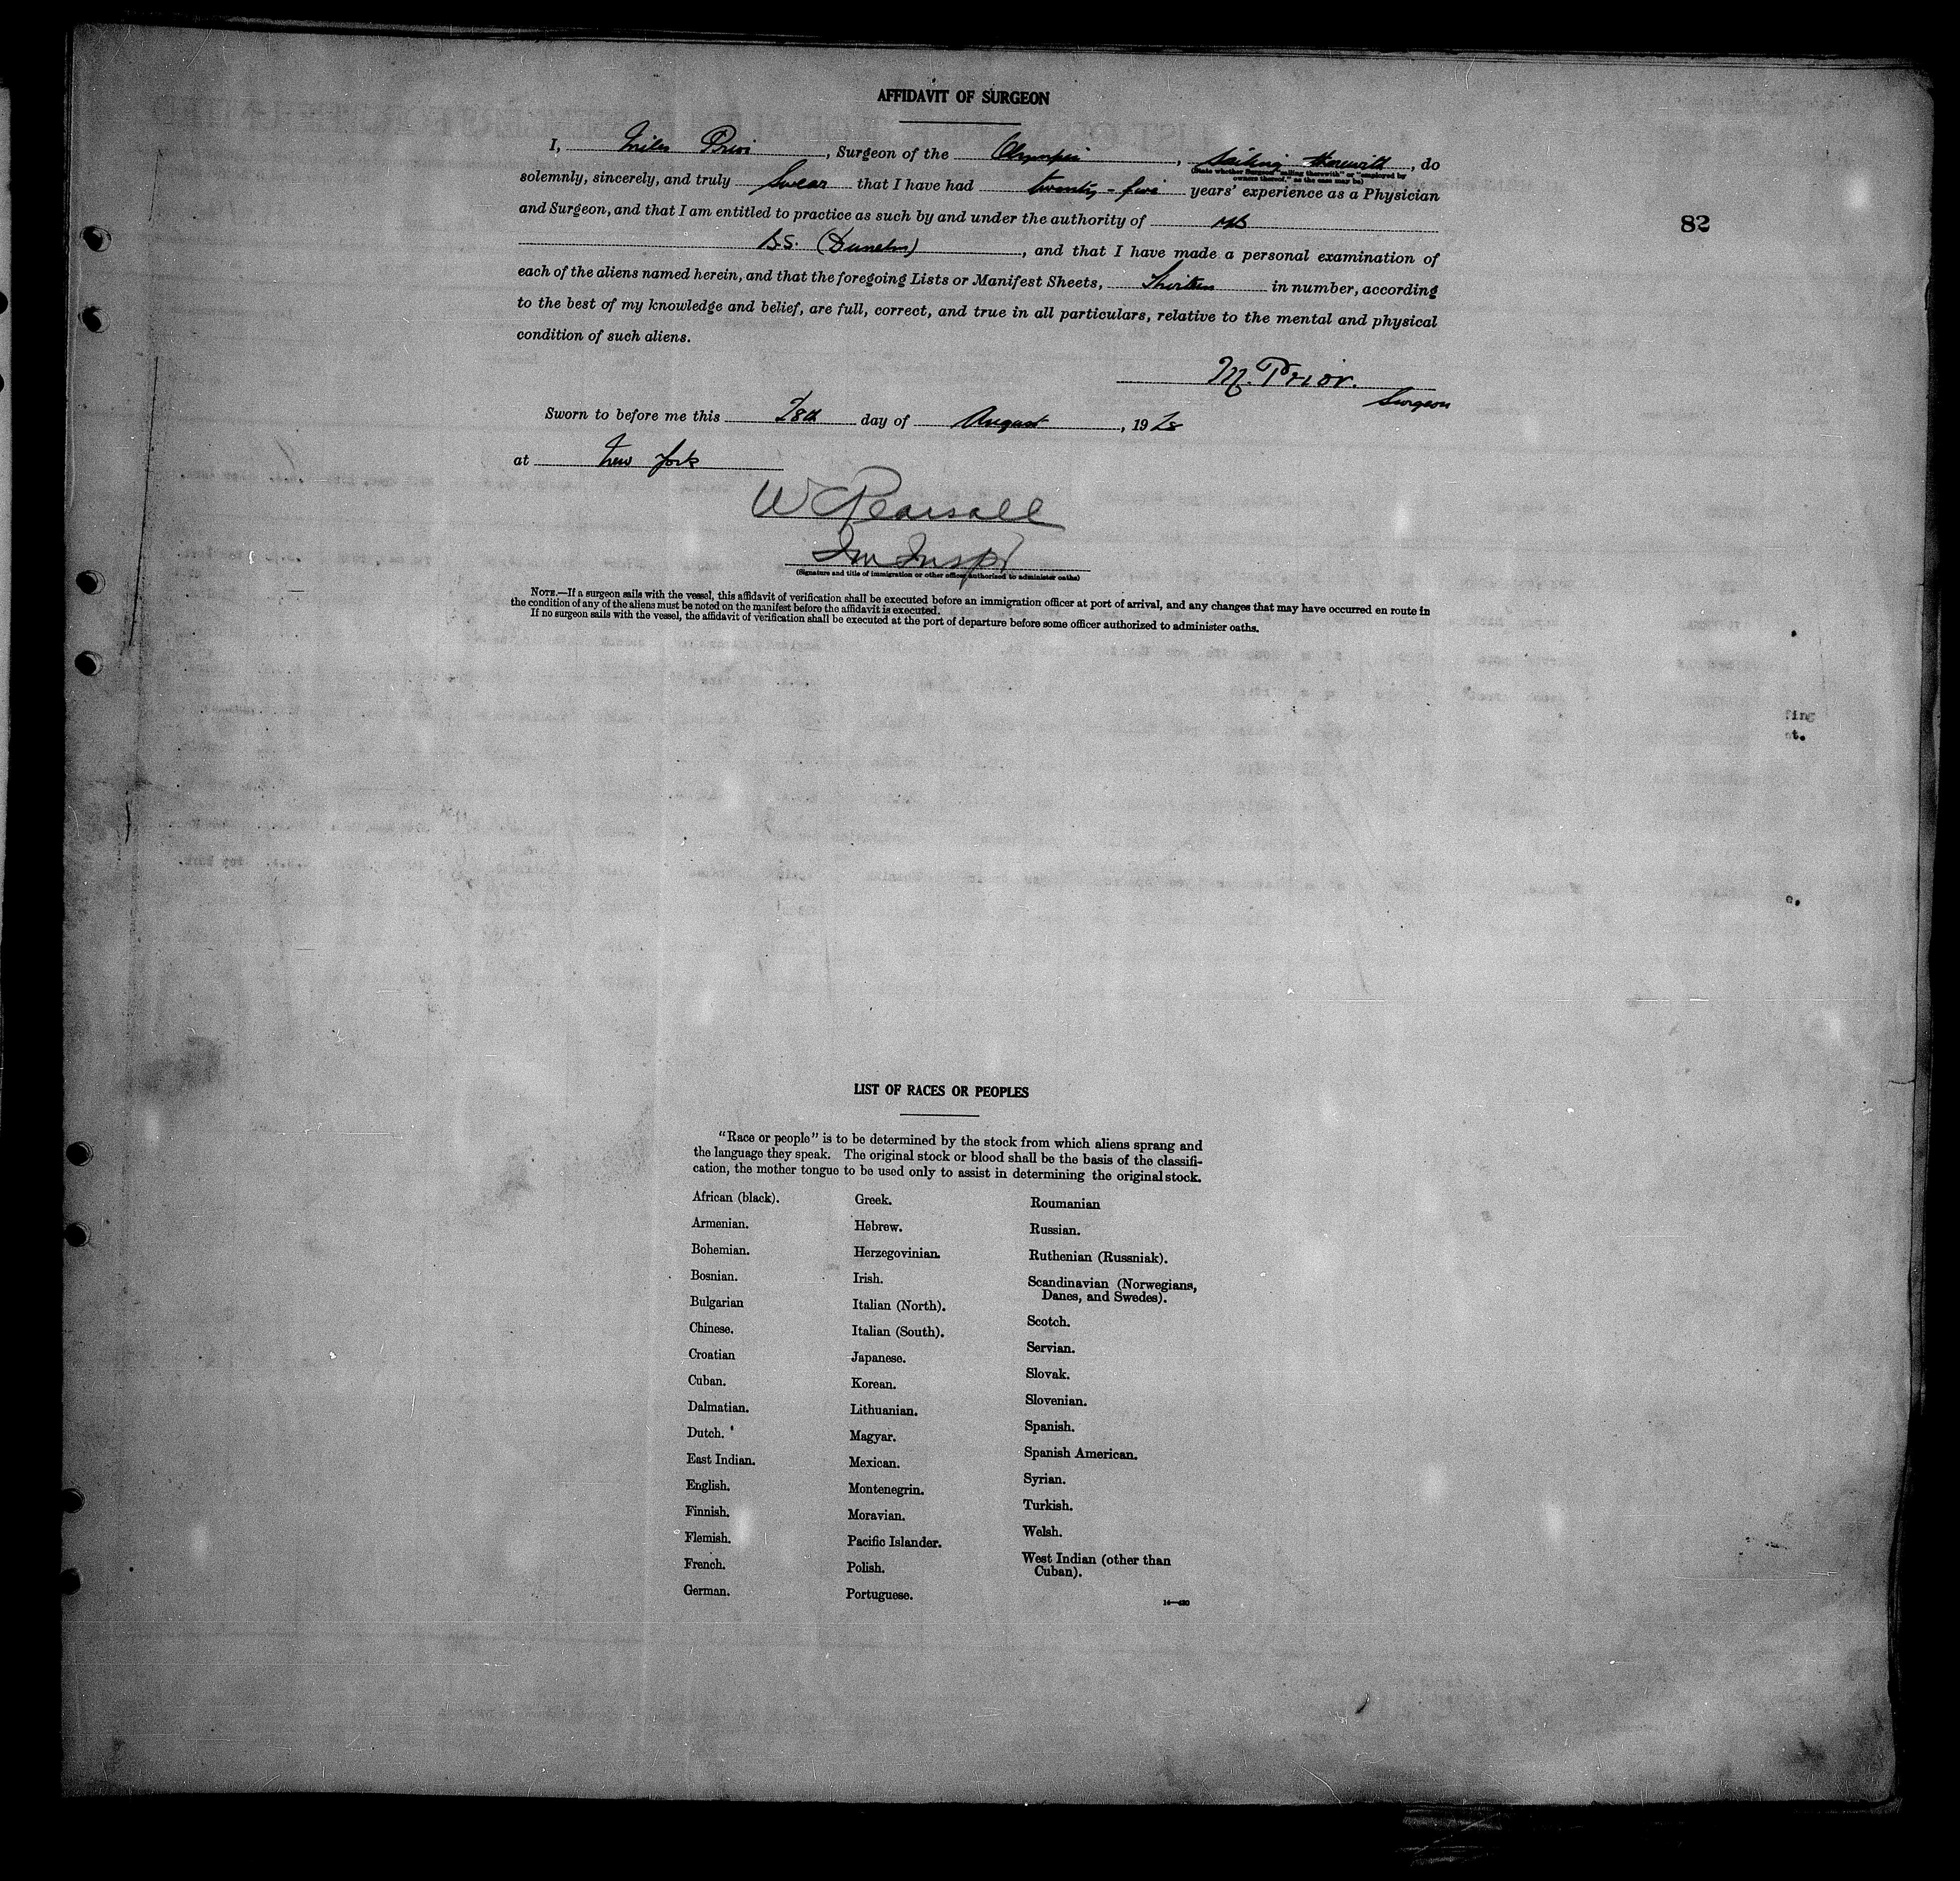 AFFIDAVIT OF SURGEON
I, Miles Prior, Surgeon of the Olympic, sailing therewith, do
(State whether Surgeon "sailing therewith" or "employed by
owners thereof," as the case may be)
solemnly, sincerely, and truly swear that I have had twenty-five years' experience as a Physician
and Surgeon, and that I am entitled to practice as such by and under the authority of MB
82
B.S. (Dunelm), and that I have made a personal examination of
each of the aliens named herein, and that the foregoing Lists or Manifest Sheets, Thirteen in number, according
to the best of my knowledge and belief, are full, correct, and true in all particulars, relative to the mental and physical
condition of such aliens.
M. Prior.
Surgeon
Sworn to before me this 28th day of August, 1928
at New York
W C Pearsall
Im Inspr
(Signature and title of immigration or other officer authorized to administer oaths)
NOTE.—If a surgeon sails with the vessel, this affidavit of verification shall be executed before an immigration officer at port of arrival, and any changes that may have occurred en route in
the condition of any of the aliens must be noted on the manifest before the affidavit is executed.
If no surgeon sails with the vessel, the affidavit of verification shall be executed at the port of departure before some officer authorized to administer oaths.
LIST OF RACES OR PEOPLES
"Race or people" is to be determined by the stock from which aliens sprang and
the language they speak. The original stock or blood shall be the basis of the classifi-
cation, the mother tongue to be used only to assist in determining the original stock.
African (black).
Armenian.
Bohemian.
Bosnian.
Bulgarian
Chinese.
Croatian
Cuban.
Dalmatian.
Dutch.
East Indian.
English.
Finnish.
Flemish.
French.
German.
Greek.
Hebrew.
Herzegovinian.
Irish.
Italian (North).
Italian (South).
Japanese.
Korean.
Lithuanian.
Magyar.
Mexican.
Montenegrin.
Moravian.
Pacific Islander.
Polish.
Portuguese.
Roumanian
Russian.
Ruthenian (Russniak).
Scandinavian (Norwegians,
Danes, and Swedes).
Scotch.
Servian.
Slovak.
Slovenian.
Spanish.
Spanish American.
Syrian.
Turkish.
Welsh.
West Indian (other than
Cuban).